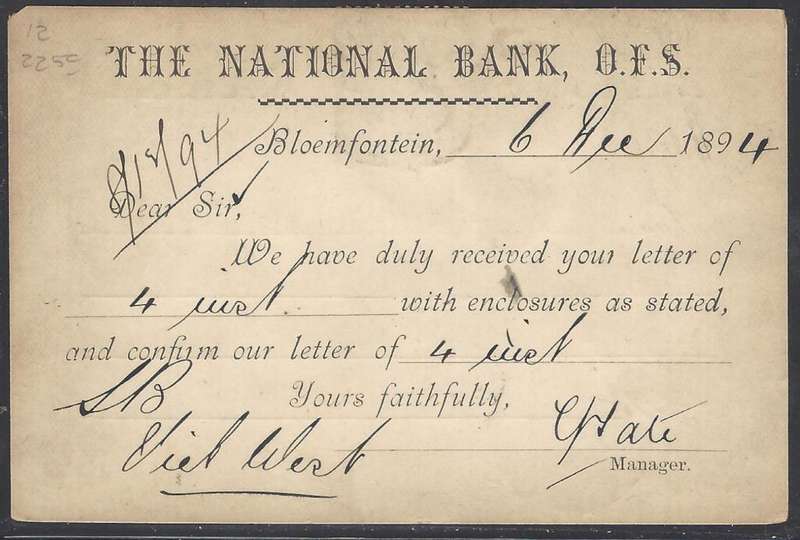 12
225c
THE NATIONAL BANK, O.F.S.
Bloemfontein, 6 Dec 1894
8/12/94
Dear Sir,
We have duly received your letter of
4 inst with enclosures as stated,
and confirm our letter of 4 inst
SB Yours faithfully,
Vict West
Manager.